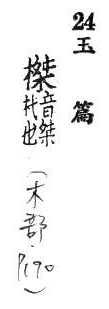 24 玉篇
榤音桀杙也
(木部.P190)